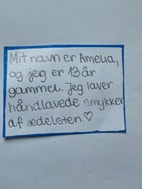 Mit navn er Amelia,
og jeg er 13 år
gammel. Jeg laver
håndlavede smykker
af ædelsten ♡